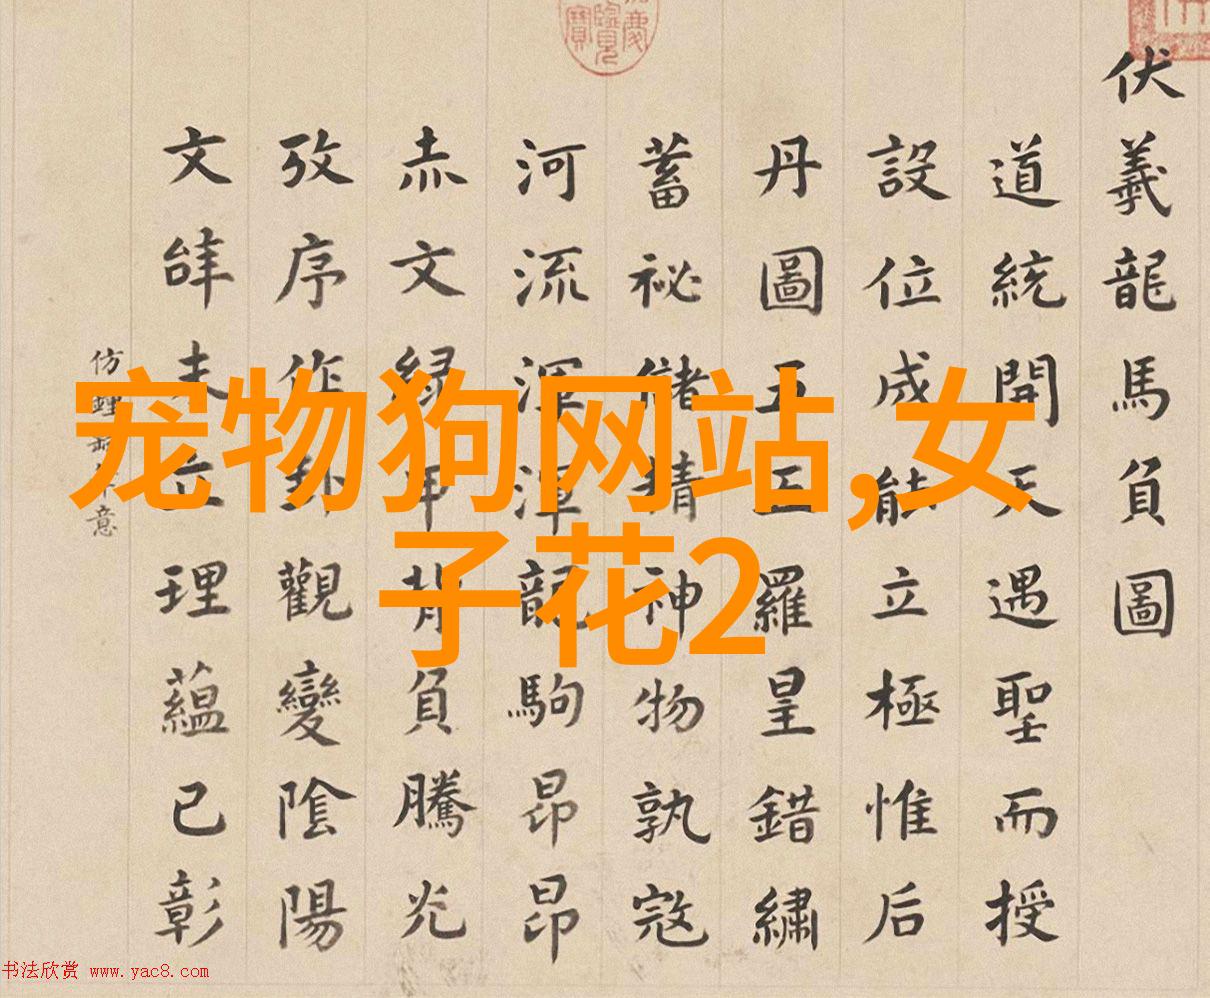 伏羲龍馬負圖
道統開天遇聖而授
設位成能立極惟后
丹圖五三羅皇錯繡
蓄祕儲精神物孰寇
河流渾渾龍駒昂昂
赤文緑甲背負騰光
攷序作卦觀變陰陽
文辞未立理蘊已彰
仿鍾
意
宠物狗网站,女
子花2
书法欣赏 www.yac8.com